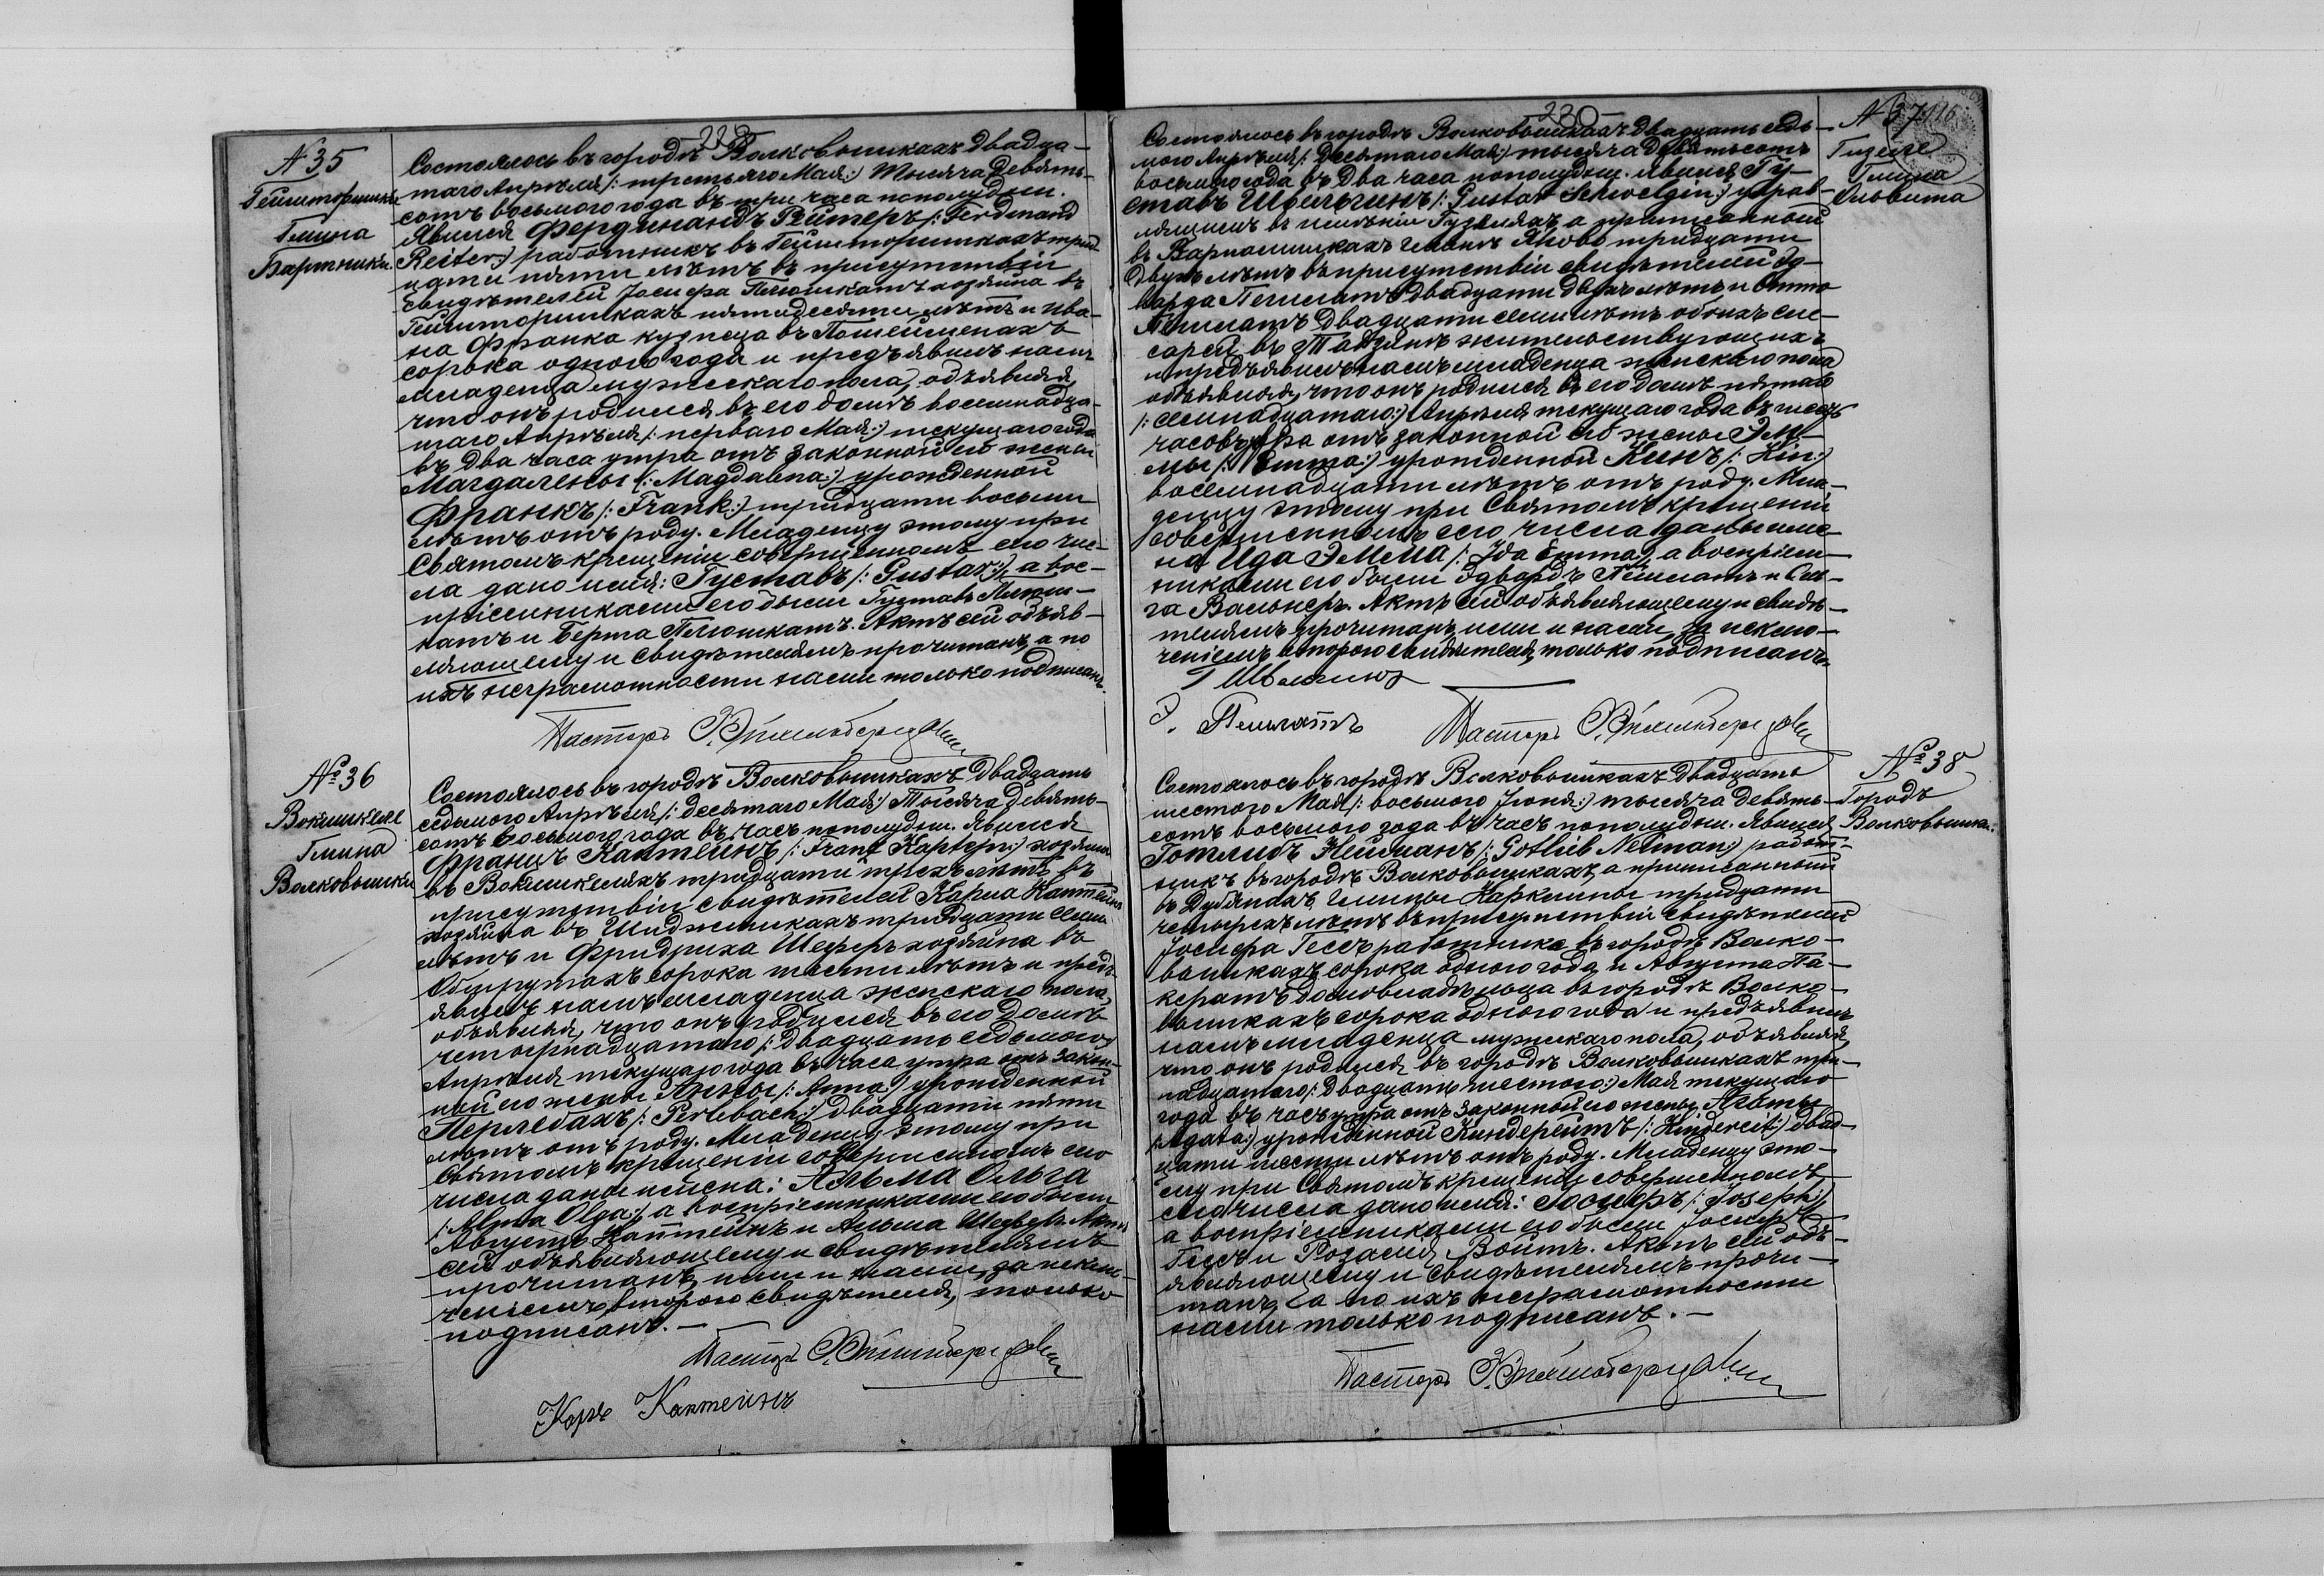 229
N 35
Гмина
Бартники.
Состоялось въ городѣ Волковышкахъ двадца-
таго Апрѣля /: третьяго Мая:/ тысяча девять-
сотъ восьмого года въ три часа пополудни.
Явился Фердинандъ Рейтеръ /: Ferdinand
Reiter:/ работникъ въ трид-
цати пяти лѣтъ въ присутствіи
свидѣтелей Іосифа хозяина въ
пятидесяти лѣтъ и Ива-
на Франка кузнеца въ
сорока одного года и предъявилъ намъ
младенца мужескаго пола, объявляя,
что онъ родился въ его домѣ восемнадца-
таго Апрѣля /: перваго Мая:/ текущаго года
въ два часа утра отъ законной его жены
Магдалены /: Magdalena:/ урожденной
Франкъ /: Frank:/ тридцати восьми
лѣтъ отъ роду. Младенцу этому при
Святомъ крещеніи совершенномъ сего чис-
ла дано имя: Густавъ /: Gustav:/, а вос-
пріемниками его были Густавъ
и Берта Плюшкатъ. Актъ сей объяв-
ляющему и свидѣтелямъ прочитанъ, а по
ихъ неграмотности нами только подписанъ.
Пасторъ
№ 36
Вокишкеле
Гмина
Волковышки
Состоялось въ городѣ Волковышкахъ двадцать
седьмого Апрѣля /: десятаго Мая:/ тысяча девять-
сотъ восьмого года въ часъ пополудни. Явился
Францъ Каптейнъ /: Franz хозяинъ
въ Вокишкеляхъ тридцати трехъ лѣтъ въ
присутствіи свидѣтелей Карла Каптейна
хозяина въ тридцати семи
лѣтъ и Фридриха Шеферъ хозяина въ
сорока шести лѣтъ и предъ-
явилъ намъ младенца женскаго пола,
объявляя, что онъ родился въ его домѣ
четырнадцатаго /: двадцать седьмого:/
Апрѣля текущаго года въ часа утра отъ закон-
ной его жены Анны /: Anna:/ урожденной
Перлебахъ /: Perlebach:/ двадцати пяти
лѣтъ отъ роду. Младенцу этому при
Святомъ крещеніи совершенномъ сего
числа даны имена: Альма Ольга
/: Alma Olga:/ а воспріемниками его были
Августъ Каптейнъ и Альма Актъ
сей объявляющему и свидѣтелямъ
прочитанъ, ими и нами, за исклю-
ченіемъ второго свидѣтеля, только
подписанъ.-
Пасторъ
Карлъ Каптейнъ
230
N 37
116
Гмина
Ольвита
Состоялось въ городѣ Волковышкахъ двадцать седь-
мого Апрѣля /: десятаго Мая:/ тысяча девятьсотъ
восьмого года въ два часа пополудни. Явился Гу-
ставъ Швельгинъ /: Gustav Schwelgin:/ управ-
ляющій въ имѣніи а приписанный
въ гмины Яново тридцати
двухъ лѣтъ въ присутствіи свидѣтелей Эд-
варда двадцати двухъ лѣтъ и Отто
двадцати семи лѣтъ обоихъ сле-
сарей въ жительствующихъ
и предъявилъ намъ младенца женскаго пола
объявляя, что онъ родился въ его домѣ пятаго
/: семнадцатаго:/ Апрѣля текущаго года въ шесть
часовъ утра отъ законной его жены Эм-
мы /: Emma:/ урожденной Кинъ /: Kin:/
восемнадцати лѣтъ отъ роду. Мла-
денцу этому при Святомъ крещеніи
совершенномъ сего числа даны име-
на Ида Эмма /: Ida Emma:/, а воспріем-
никами его были Эдвардъ и Оль-
га Актъ сей объявляющему и свидѣ-
телямъ прочитанъ, ими и нами, за исклю-
ченіемъ второго свидѣтеля, только подписанъ.
Г. Швельгинъ
Э.
Пасторъ
№ 38
Городъ
Волковышки.
Состоялось въ городѣ Волковышкахъ двадцать
шестого Мая /: восьмого Іюня:/ тысяча девять-
сотъ восьмого года въ часъ пополудни. Явился
Готлибъ Нейманъ /: Gotlieb Neiman:/ работ-
никъ въ городѣ Волковышкахъ, а приписанный
въ гмины тридцати
четырехъ лѣтъ въ присутствіи свидѣтелей
Іосифа Гессъ работника въ городѣ Волко-
вышкахъ сорока одного года и Августа Па-
кератъ домовладѣльца въ городѣ Волко-
вышкахъ сорока одного года и предъявилъ
намъ младенца мужескаго пола, объявляя,
что онъ родился въ городѣ Волковышкахъ три-
надцатаго /: двадцать шестого:/ Мая текущаго
года въ часъ утра отъ законной его жены Агаты
/: Agata:/ урожденной Киндерейтъ /: Kindereit:/ двад-
цати шести лѣтъ отъ роду. Младенцу это-
му при Святомъ крещеніи совершенномъ
сего числа дано имя: Іосифъ /: Joseph:/
а воспріемниками его были Іосифъ
Гессъ и Розалія Войтъ. Актъ сей объ-
являющему и свидѣтелямъ прочи-
танъ, а по ихъ неграмотности
нами только подписанъ.-
Пасторъ